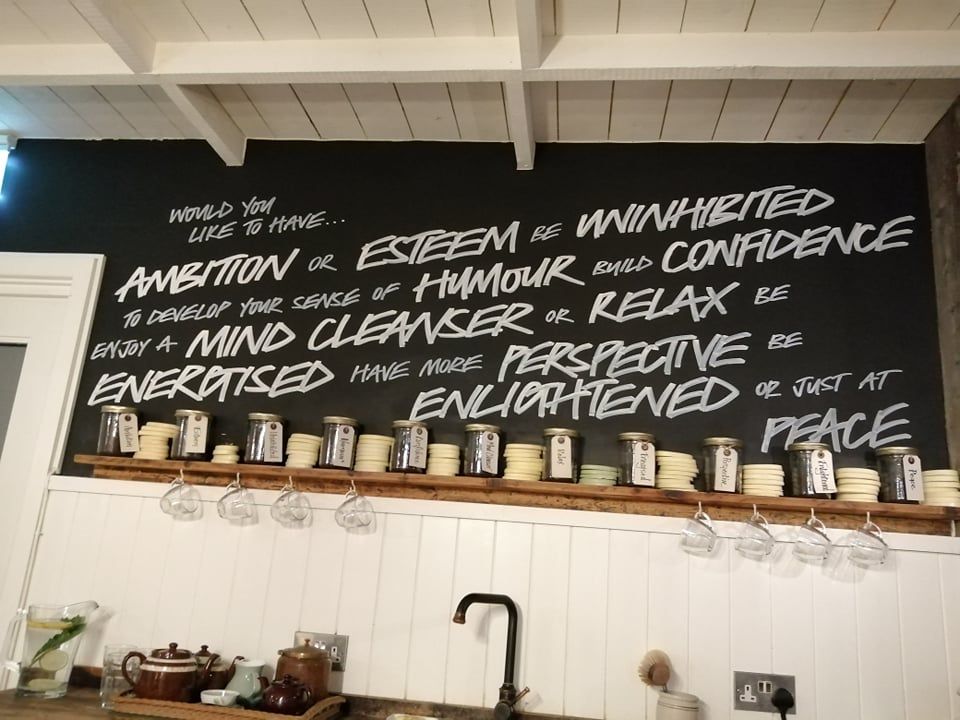 WOULD YOU
LIKE TO HAVE...
AMBITION OR ESTEEM BE UNINHIBITED
TO DEVELOP YOUR SENSE OF HUMOUR BUILD CONFIDENCE
ENJOY A MIND CLEANSER OR RELAX BE
ENERGISED HAVE MORE PERSPECTIVE BE
ENLIGHTENED OR JUST AT
PEACE
Ambition
Esteem
Uninhibited
Humour
Confidence
Mind Cleanser
Relax
Energised
Perspective
Enlightened
Peace